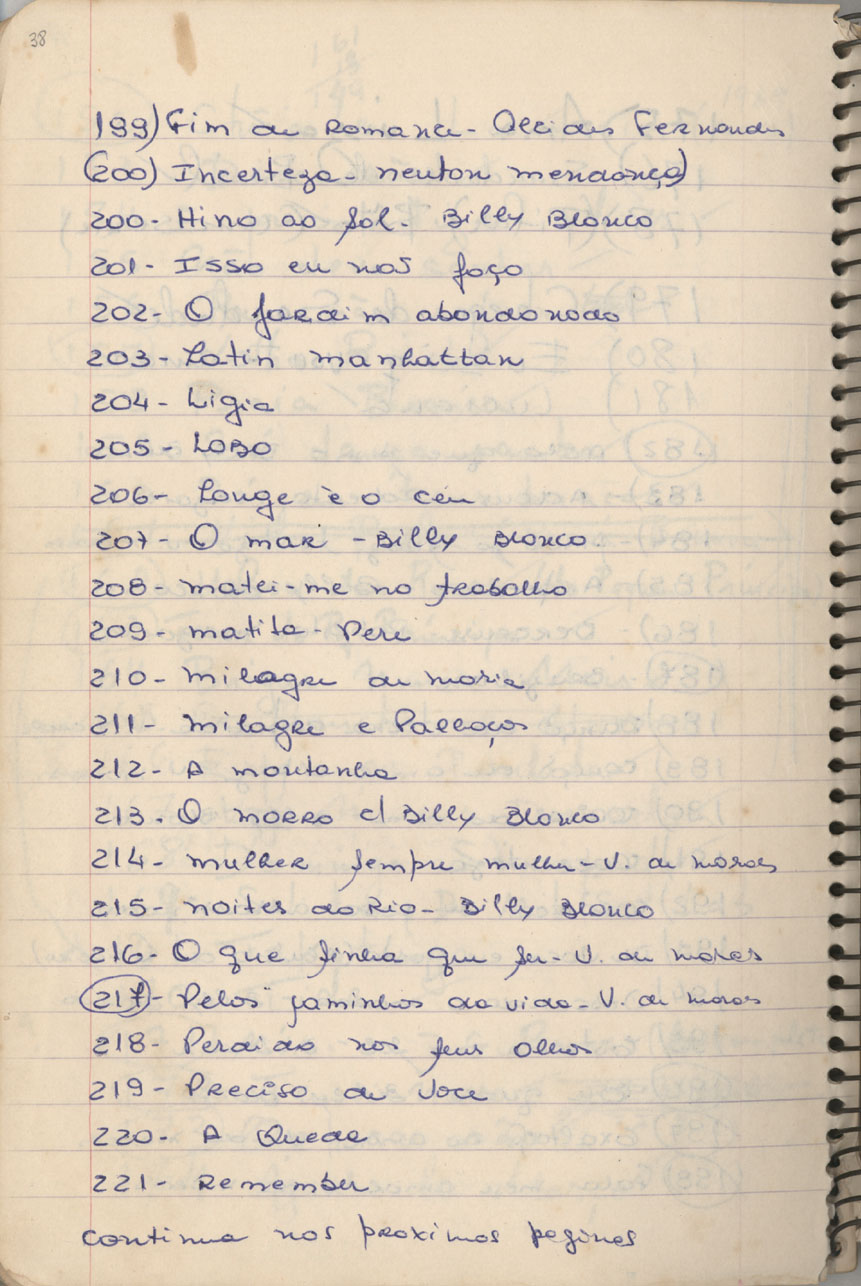 38
199) Fim de Romance - Alcides Fernandes
(200) Incerteza - Newton Mendonça)
200 - Hino ao Sol - Billy Blanco
201 - Isso eu não faço
202 - O Jardim abandonado
203 - Latin Manhattan
204 - Ligia
205 - LOBO
206 - Longe é o céu
207 - O mar - Billy Blanco
208 - Matei-me no trabalho
209 - Matita - Perê
210 - Milagre de Maria
211 - Milagre e Palhaços
212 - A montanha
213 - O morro c/ Billy Blanco
214 - Mulher sempre mulher - V. de Moraes
215 - Noites do Rio - Billy Blanco
216 - O que tinha que ser - V. de Moraes
217 - Pelos caminhos da vida - V. de Moraes
218 - Perdido nos seus olhos
219 - Preciso de Voce
220 - A Queda
221 - Remember
continua nas proximas paginas